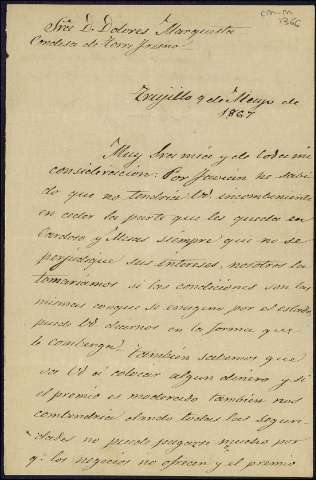 Sra Da Dolores Marquesta
Condesa de Torre Fresno
cm-m
1366
Trujillo 9 de Mayo de
1867
Muy Sra mia y de toda mi
consideracion: Por Juan he sabi
do que no tendria Vd incombeniente
en ceder la parte que les queda en
Cardoso y Mesas siempre que no se
perjudique sus intereses, nosotros la
tomariamos si las condiciones son las
mismas conque se enagena por el estado,
puede Vd decirnos en la forma que
le combenga. Tambien sabemos que
va Vd á colocar algun dinero y si
el premio es moderado tambien nos
combendria dando todas las seguri-
dades no puede pagarse mucho por
q: los negocios no ofrecen y el premio